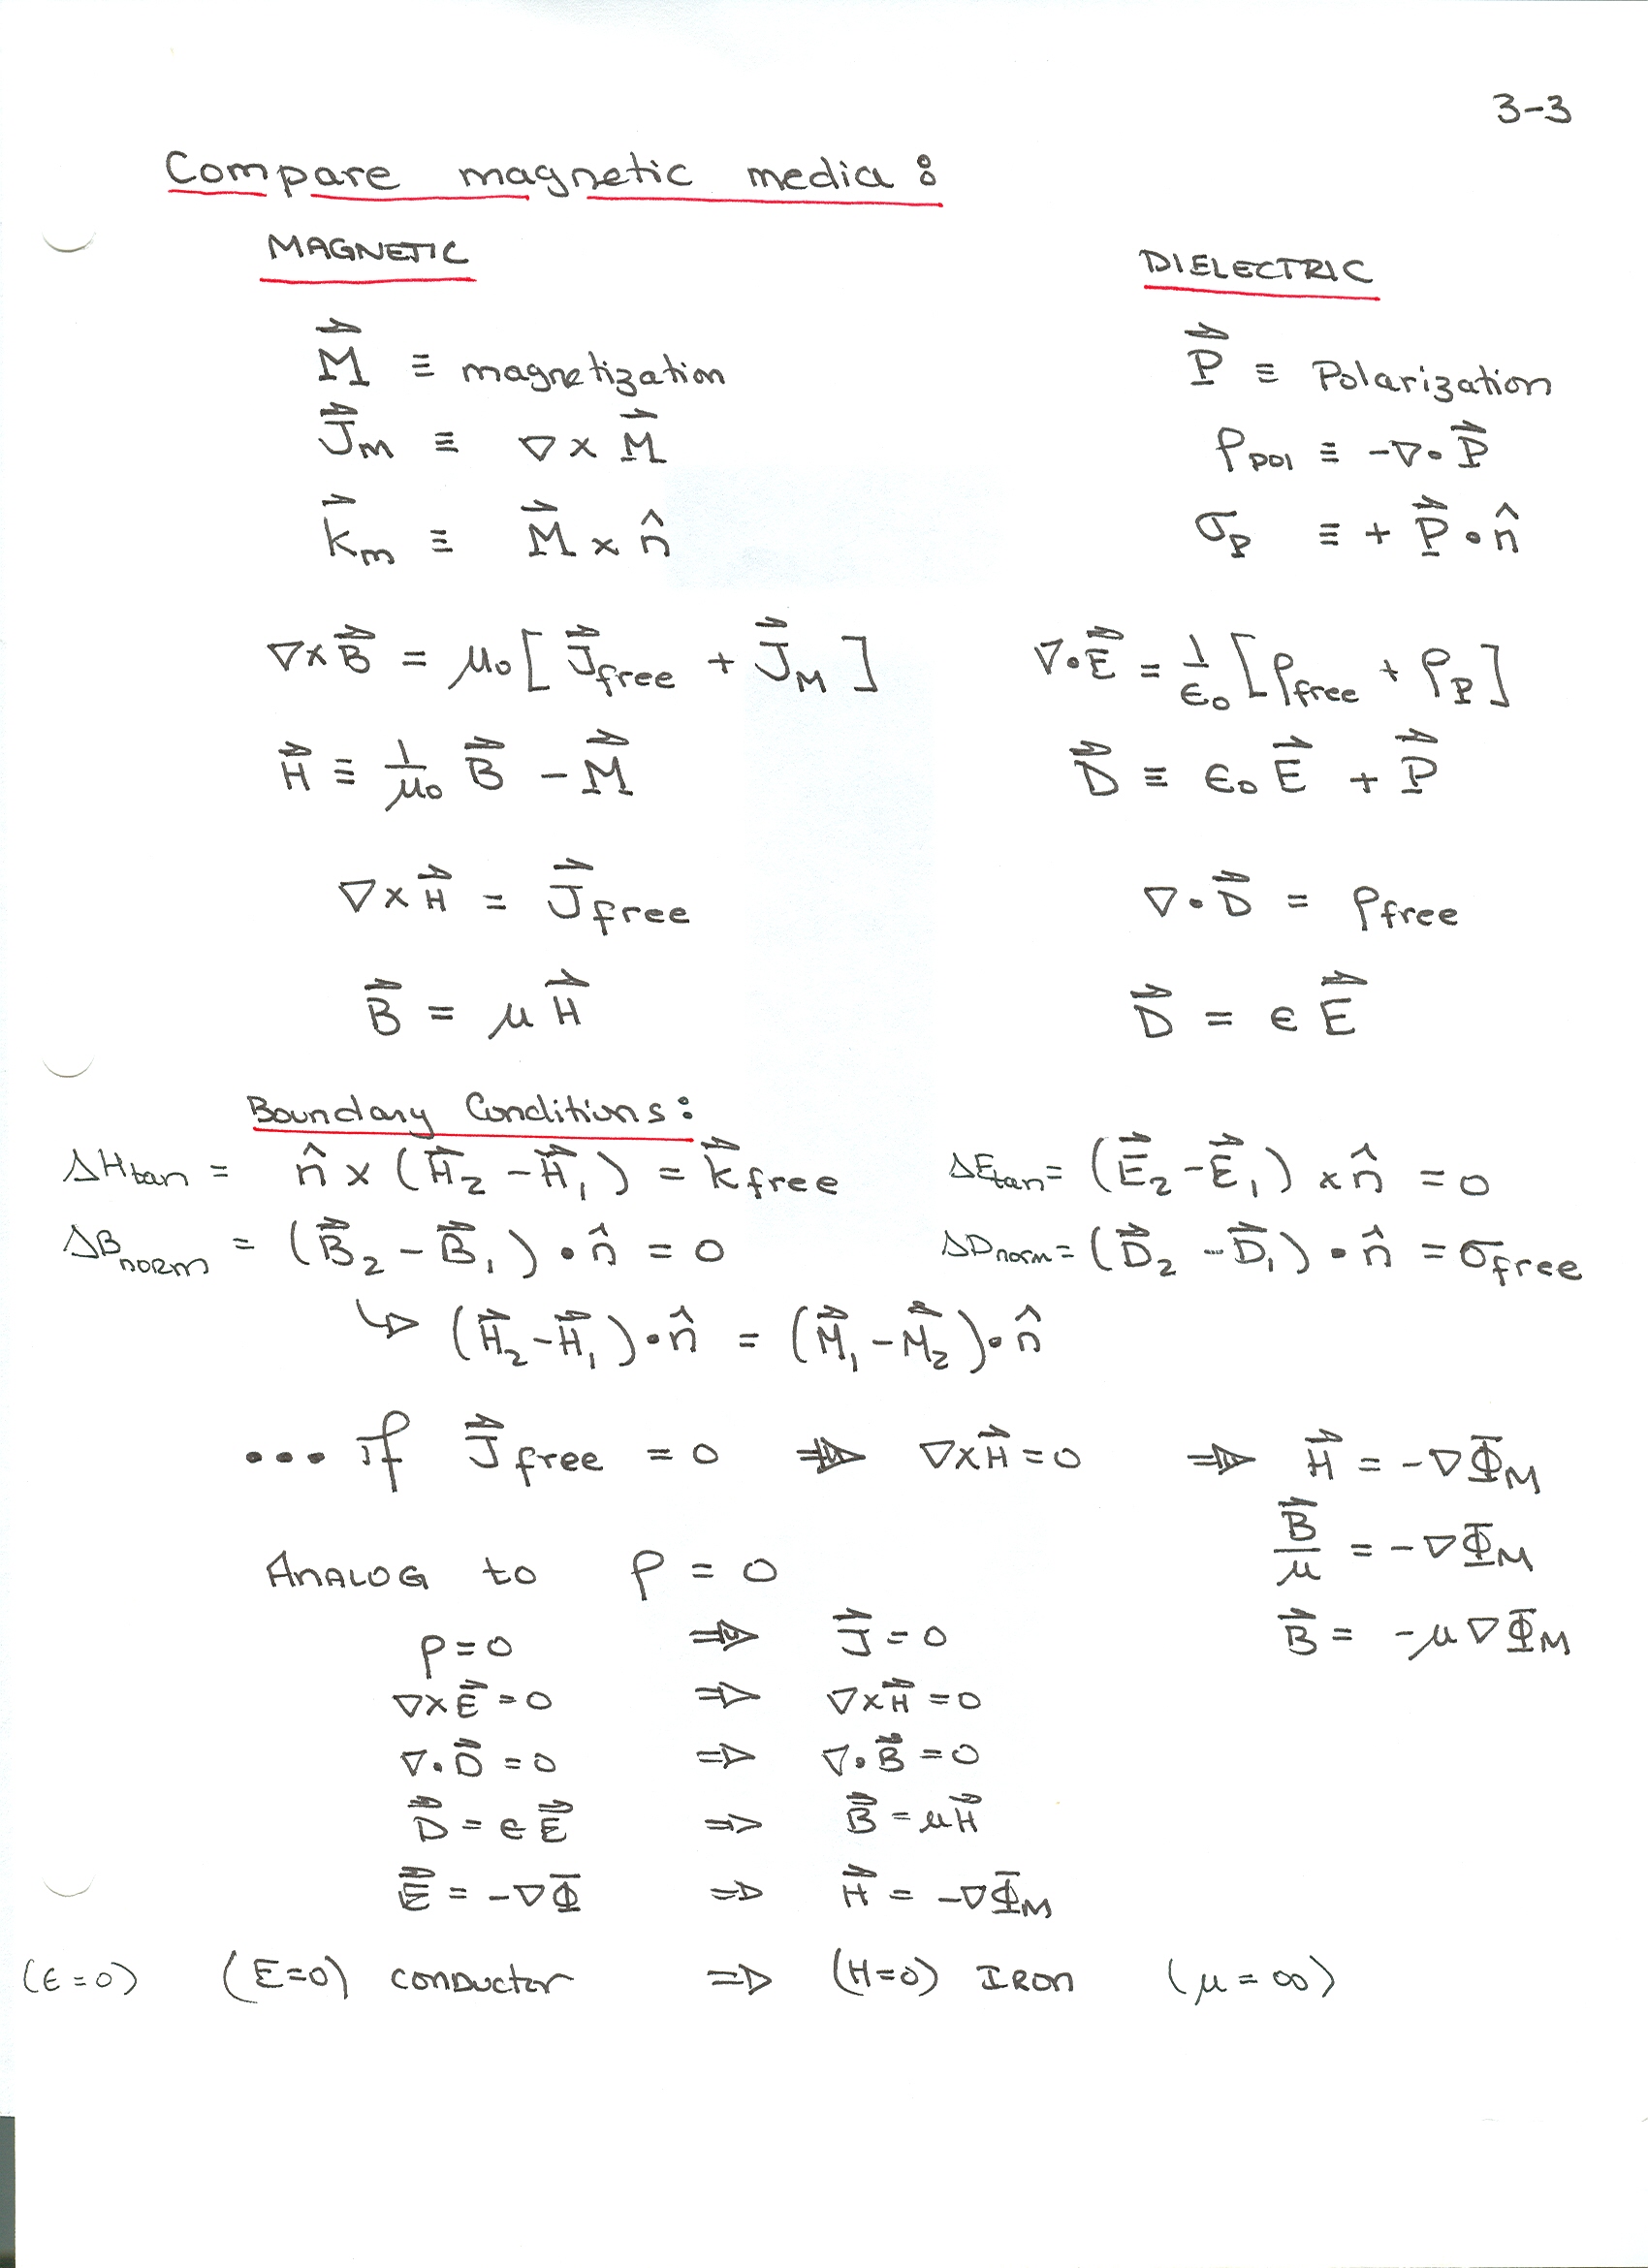 3-3
Compare magnetic media:
MAGNETIC DIELECTRIC
M⃗ ≡ magnetization P⃗ ≡ Polarization
J⃗m ≡ ∇ × M⃗ ρpol ≡ -∇・P⃗
k⃗m ≡ M⃗ × n̂ σP ≡ + P⃗・n̂
∇×B⃗ = μ0 [ J⃗free + J⃗M ] ∇・E⃗ = 1/ε0 [ρfree + ρP]
H⃗ ≡ 1/μ0 B⃗ - M⃗ D⃗ ≡ ε0 E⃗ + P⃗
∇×H⃗ = J⃗free ∇・D⃗ = ρfree
B⃗ = μ H⃗ D⃗ = ε E⃗
Boundary Conditions:
ΔHtan = n̂ × (H⃗2 - H⃗1) = k⃗free ΔEtan = (E⃗2 - E⃗1) × n̂ = 0
ΔBnorm = (B⃗2 - B⃗1)・n̂ = 0 ΔDnorm = (D⃗2 - D⃗1)・n̂ = σfree
↳ (H⃗2 - H⃗1)・n̂ = (M⃗1 - M⃗2)・n̂
... if J⃗free = 0 ⇒ ∇×H⃗ = 0 ⇒ H⃗ = -∇ΦM
B⃗/μ = -∇ΦM
ANALOG to ρ = 0
B⃗ = -μ∇ΦM
ρ = 0 ⇒ J⃗ = 0
∇×E⃗ = 0 ⇒ ∇×H⃗ = 0
∇・D⃗ = 0 ⇒ ∇・B⃗ = 0
D⃗ = εE⃗ ⇒ B⃗ = μH⃗
E⃗ = -∇Φ ⇒ H⃗ = -∇ΦM
(ε=0) (E=0) conductor ⇒ (H=0) IRON (μ = ∞)